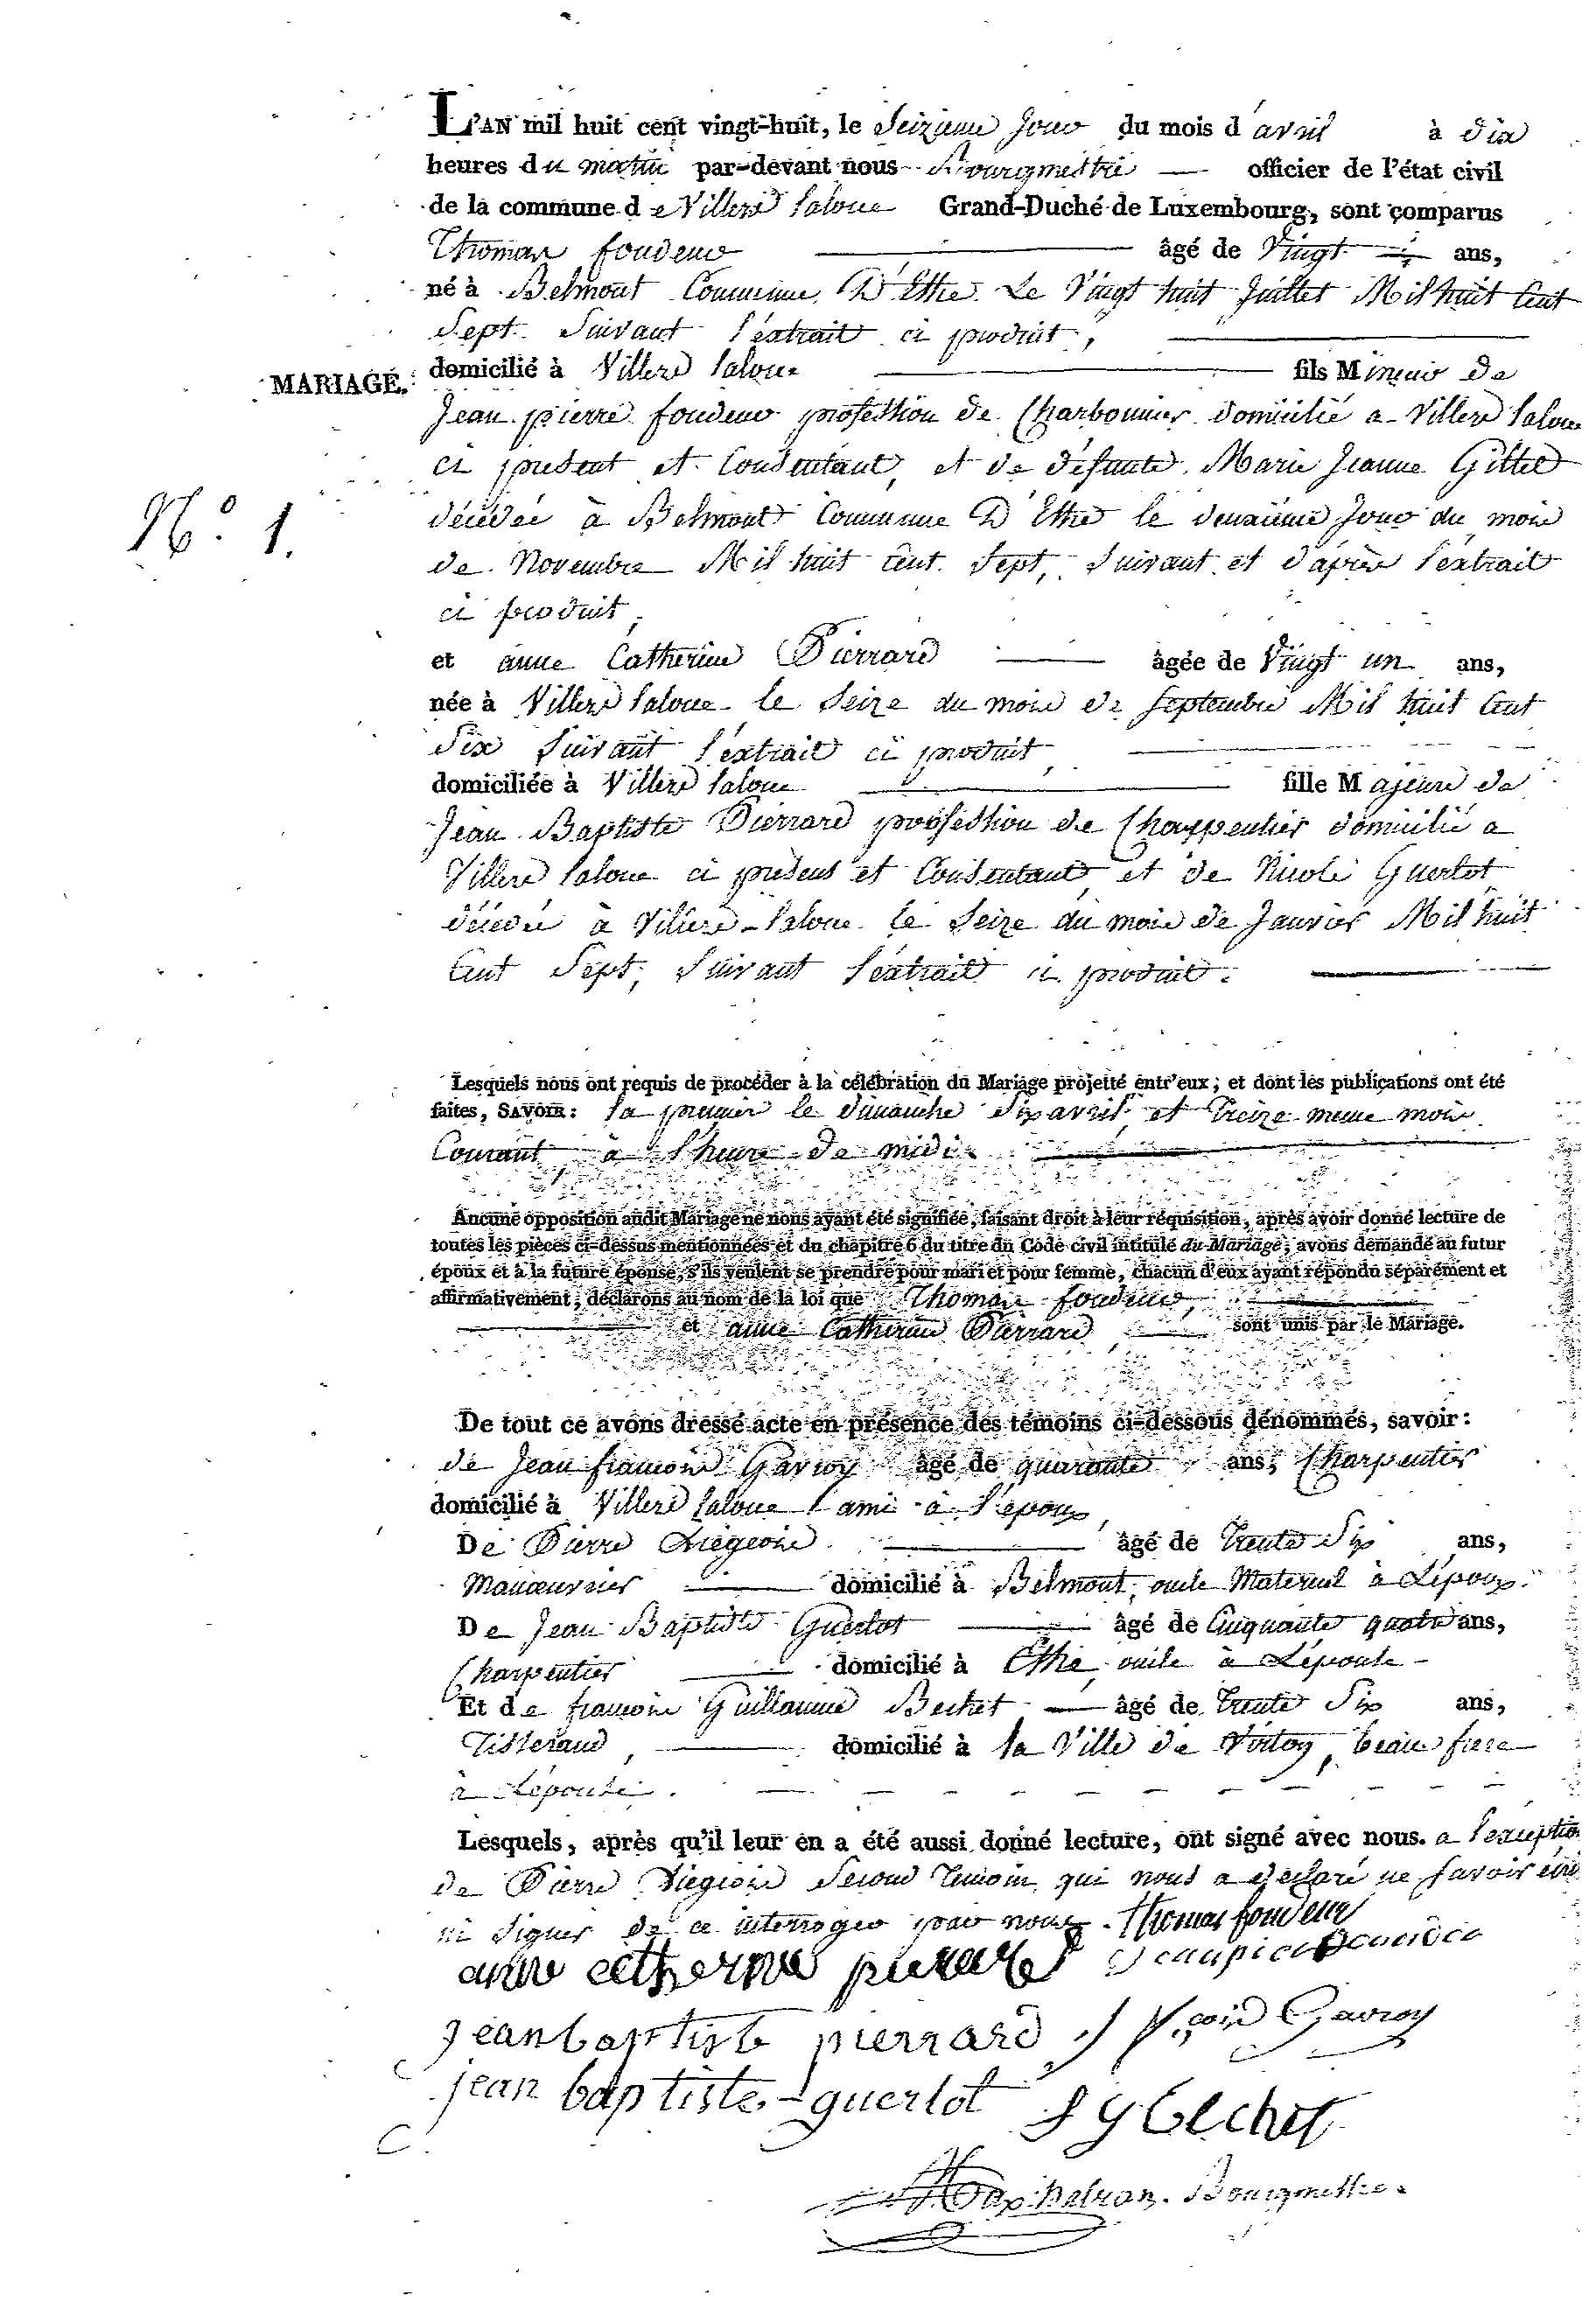 L'AN mil huit cent vingt-huit, le Seizieme Jour du mois d'avril à dix
heures du matin par-devant nous Bourgmestre officier de l'état civil
de la commune de Villers Laloue Grand-Duché de Luxembourg, sont comparus
Thomas foudeur âgé de Vingt ans,
né à Belmont Commune D'Ethe Le Vingt huit Juillet Mil huit Cent
Sept Suivant l'extrait ci produit,
MARIAGE.
domicilié à Villers Laloue fils Mineur de
Jean pierre foudeur profession de Charbonnier domicilié a Villers Laloue
ci present et Consentant, et de défunte Marie Jeanne Gillet
décédée à Belmont Commune D'Ethe le deuxiéme Jour du mois
N.o 1.
de Novembre Mil huit Cent Sept, Suivant et d'après l'extrait
ci produit,
et anne Catherine Pierrard âgée de Vingt un ans,
née à Villers Laloue le Seize du mois de Septembre Mil huit Cent
Six Suivant l'extrait ci produit,
domiciliée à Villers Laloue fille Majeure de
Jean Baptiste Pierrard profession de Charpentier domicilié a
Villers Laloue ci présent et Consentant, et de Nicole Guerlot
décédée à Villers-Laloue le Seize du mois de Janvier Mil huit
Cent Sept, Suivant l'extrait ci produit.
Lesquels nous ont requis de procéder à la célébration du Mariage projetté entr'eux; et dont les publications ont été
faites, SAVOIR: la premier le dimanche Six avril, et Treize meme mois
Courant à l'heure de midi.
Aucune opposition audit Mariage ne nous ayant été signifiée, faisant droit à leur réquisition, après avoir donné lecture de
toutes les pièces ci-dessus mentionnées et du chapitre 6 du titre du Code civil intitulé du Mariage; avons demandé au futur
époux et à la future épouse, s'ils veulent se prendre pour mari et pour femme, chacun d'eux ayant répondu séparément et
affirmativement; déclarons au nom de la loi que Thomas foudeur,
et anne Catherine Pierrard sont unis par le Mariage.
De tout ce avons dressé acte en présence des témoins ci-dessous dénommés, savoir:
de Jean francois Gavroy âgé de quarante ans, Charpentier
domicilié à Villers Laloue ami à l'époux,
De Pierre Liegeois âgé de Trente Six ans,
Manoeuvrier domicilié à Belmont, oncle Maternel à L'époux.
De Jean Baptiste Guerlot âgé de Cinquante quatre ans,
Charpentier domicilié à Ethe, oncle à L'épouse
Et de francois Guillaume Bechet âgé de Trente Six ans,
Tisserand, domicilié à la Ville de Virton, beau frere
à L'épouse.
Lesquels, après qu'il leur en a été aussi donné lecture, ont signé avec nous. a l'exception
de Pierre Liegeois Second Temoin qui nous a declaré ne Savoir écrire
ni Signer de ce interrogeo par nous. Thomas foudeur
anne catherine pierrard
jean baptiste pierrard J fçois Gavroy
jean baptiste guerlot f g bechet
Bourgmestre.